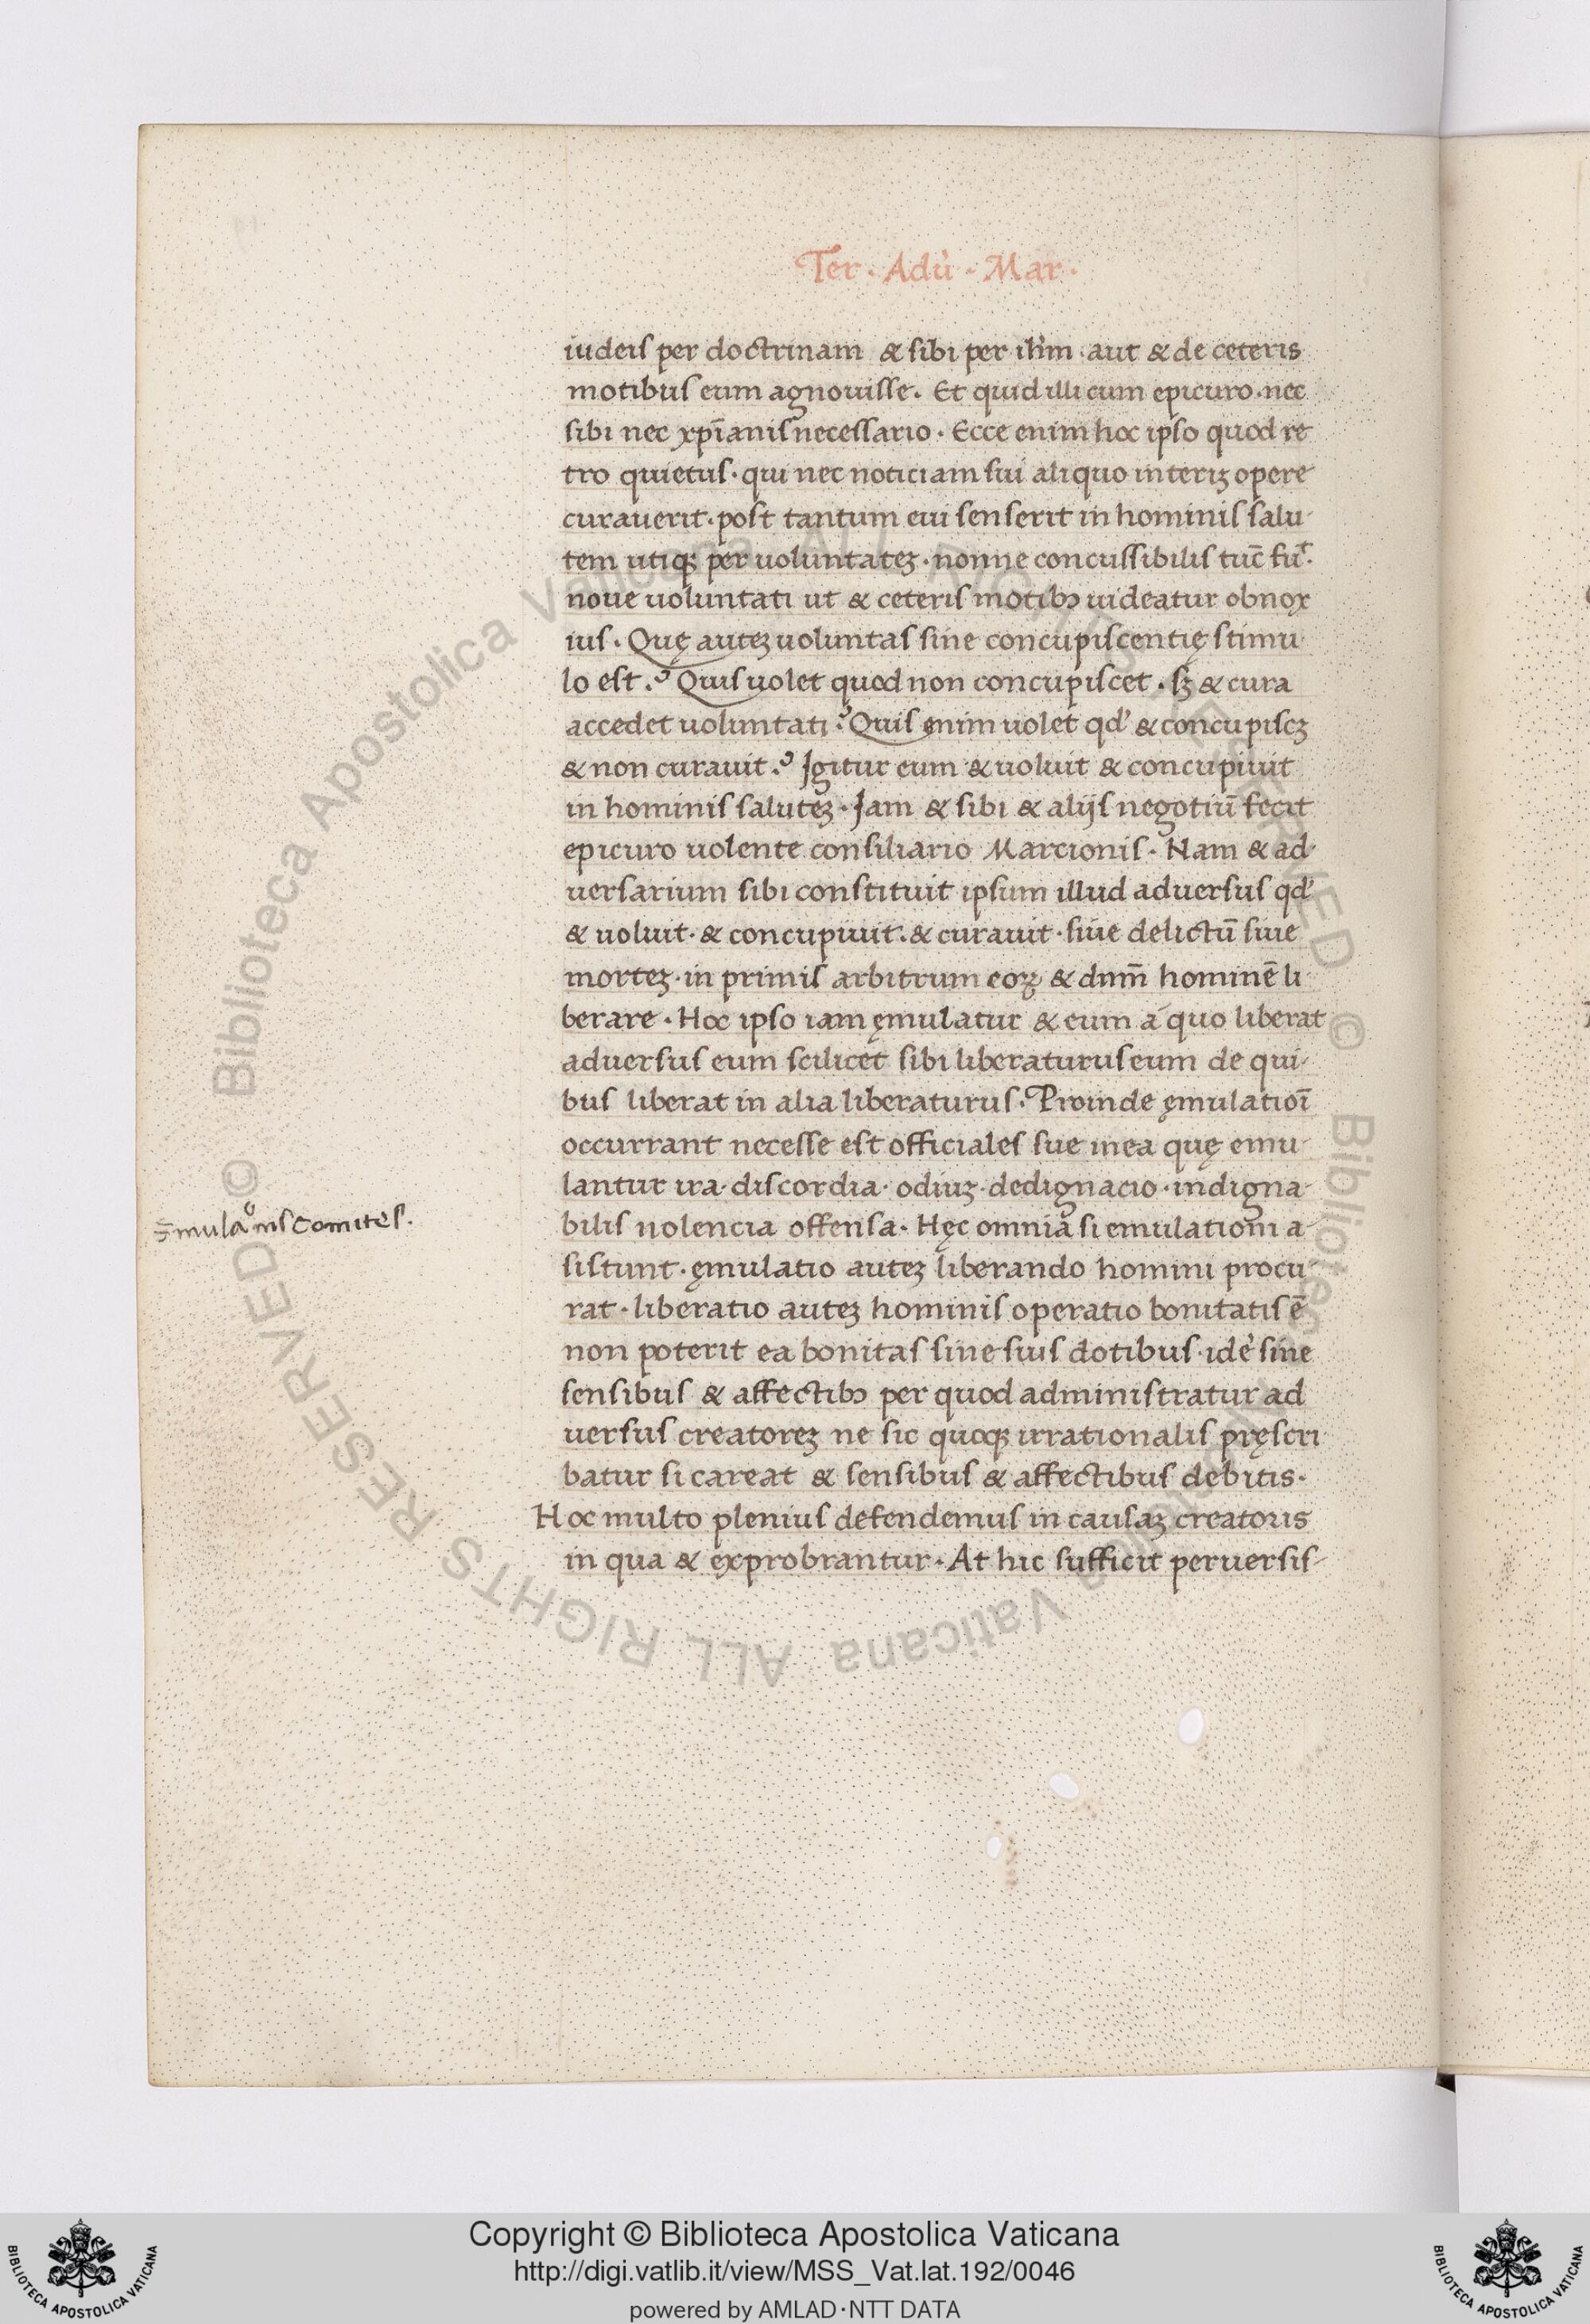 Ter · Adù · Mar ·
iudeis per doctrinam & sibi per ihm̄ · aut & de ceteris
motibus eum agnouisse. Et quid illi cum epicuro · nec
sibi nec xpīanis necessario · Ecce enim hoc ipso quod re
tro quietus · qui nec noticiam sui aliquo interiȝ opere
curauerit · post tantum eui senserit in hominis salu
tem utiqꝫ per uoluntateȝ · nonne concussibilis tuc̄ fuͭ ·
noue uoluntati ut & ceteris motibꝰ uideatur obnox
ius · Quę auteȝ uoluntas sine concupiscentię stimu
lo est ? Quis uolet quod non concupiscet · sȝ & cura
accedet uoluntati ? Quis enim uolet qd' & concupiscȝ
& non curauit ? Igitur cum & uoluit & concupiuit
in hominis saluteȝ · Iam & sibi & alijs negotiū fecit
epicuro uolente consiliario Marcionis · Nam & ad
uersarium sibi constituit ipsum illud aduersus qd'
& uoluit · & concupiuit · & curauit · siue delictū siue
morteȝ · in primis arbitrum eoꝝ & dnm̄ hominē li
berare · Hoc ipso iam ęmulatur & eum á quo liberat
aduersus eum scilicet sibi liberaturus eum de qui
bus liberat in alia liberaturus · Proinde ęmulatioī
occurrant necesse est officiales sue in ea quę emu
lantur ira · discordia · odiuȝ · dedignacio · indigna
bilis nolencia offensa · Hęc omnia si emulationi a
sistunt · ęmulatio auteȝ liberando homini procu
rat · liberatio auteȝ hominis operatio bonitatis ē
non poterit ea bonitas sine siuis dotibus · idē sine
sensibus & affectibꝰ per quod administratur ad
uersus creatoreȝ ne sic quoqꝫ irrationalis pręscri
batur si careat & sensibus & affectibus debitis ·
Hoc multo plenius defendemus in causaȝ creatoris
in qua & exprobrantur · At hic sufficit peruersis
Ęmulaᵒnis comites.
© Biblioteca Apostolica Vaticana ALL RIGHTS RESERVED © Biblioteca Apostolica Vaticana ALL RIGHTS RESERVED
Copyright © Biblioteca Apostolica Vaticana
http://digi.vatlib.it/view/MSS_Vat.lat.192/0046
powered by AMLAD·NTT DATA
BIBLIOTECA APOSTOLICA VATICANA
BIBLIOTECA APOSTOLICA VATICANA